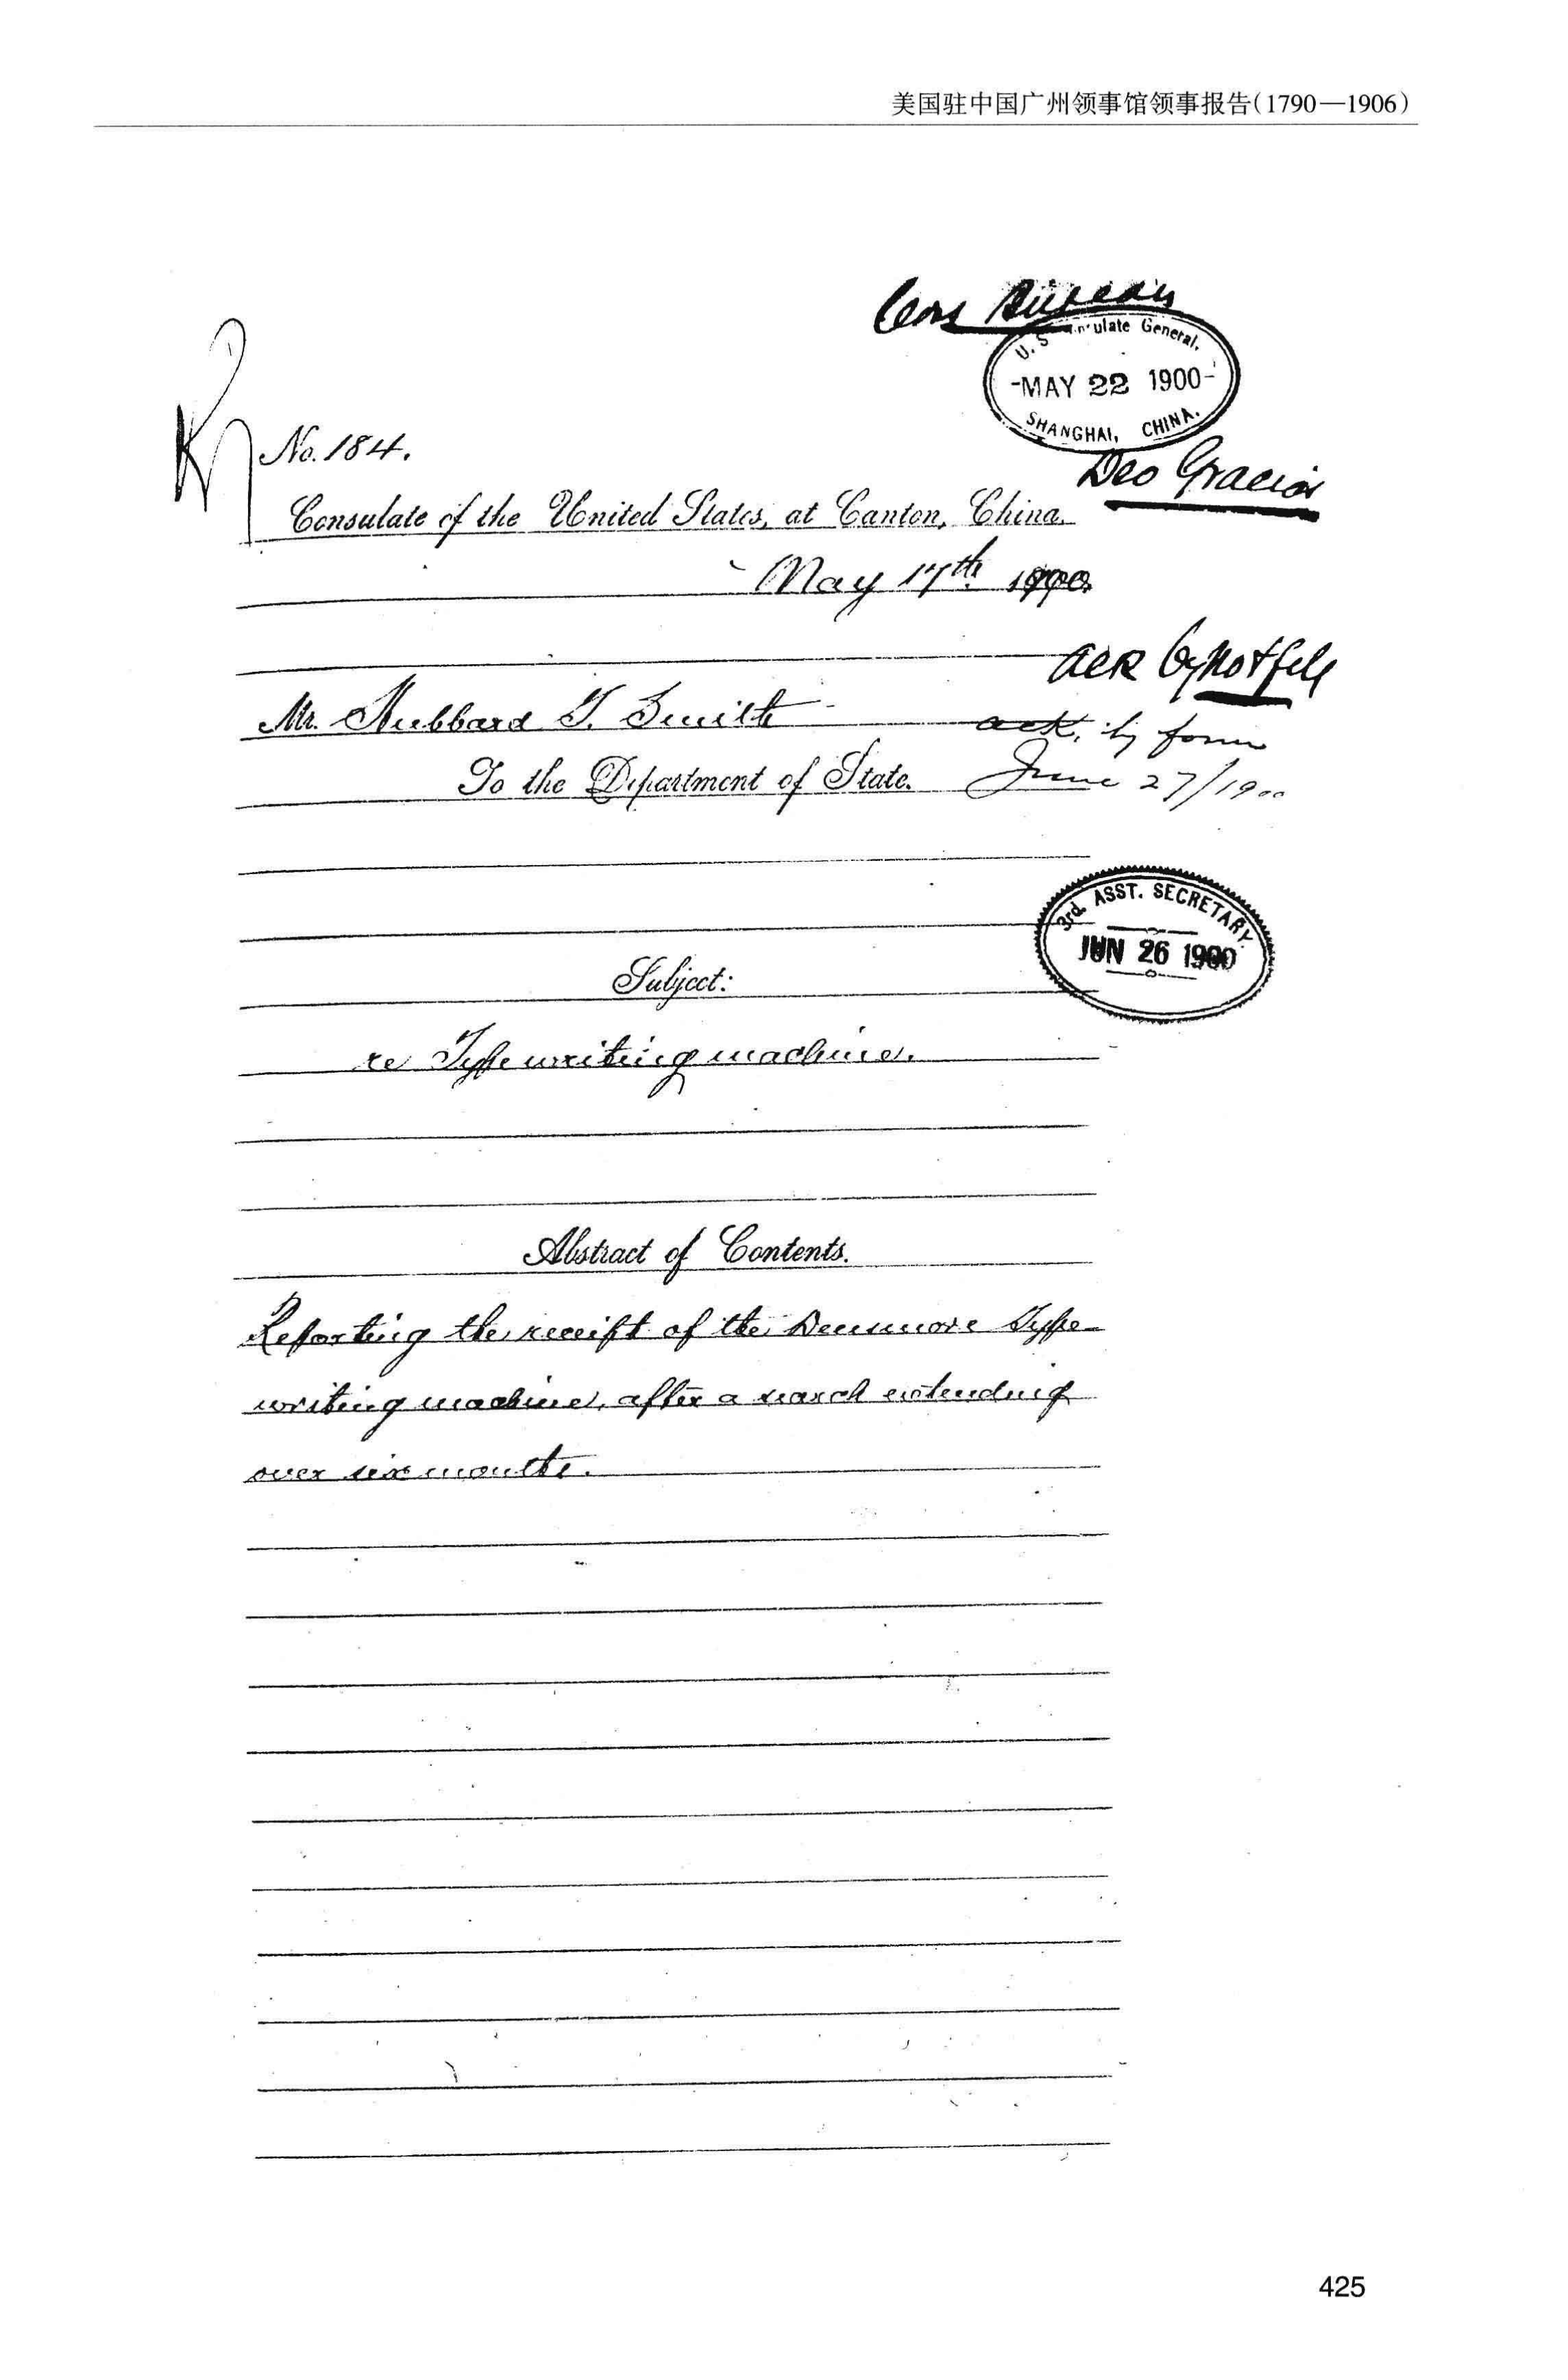 美国驻中国广州领事馆领事报告(1790—1906)
Cons Bureau
U.S. Consulate General,
-MAY 22 1900-
SHANGHAI, CHINA.
No. 184.
Deo Gracias
Consulate of the United States, at Canton, China.
May 17th 1900.
ack by not fill
Mr. Hubbard T. Smith
ack. by form
To the Department of State.
June 27/1900
3rd. ASST. SECRETARY.
JUN 26 1900
Subject:
re Typewriting machine.
Abstract of Contents.
Reporting the receipt of the Densmore Type-
writing machine, after a search extending
over six months.
425